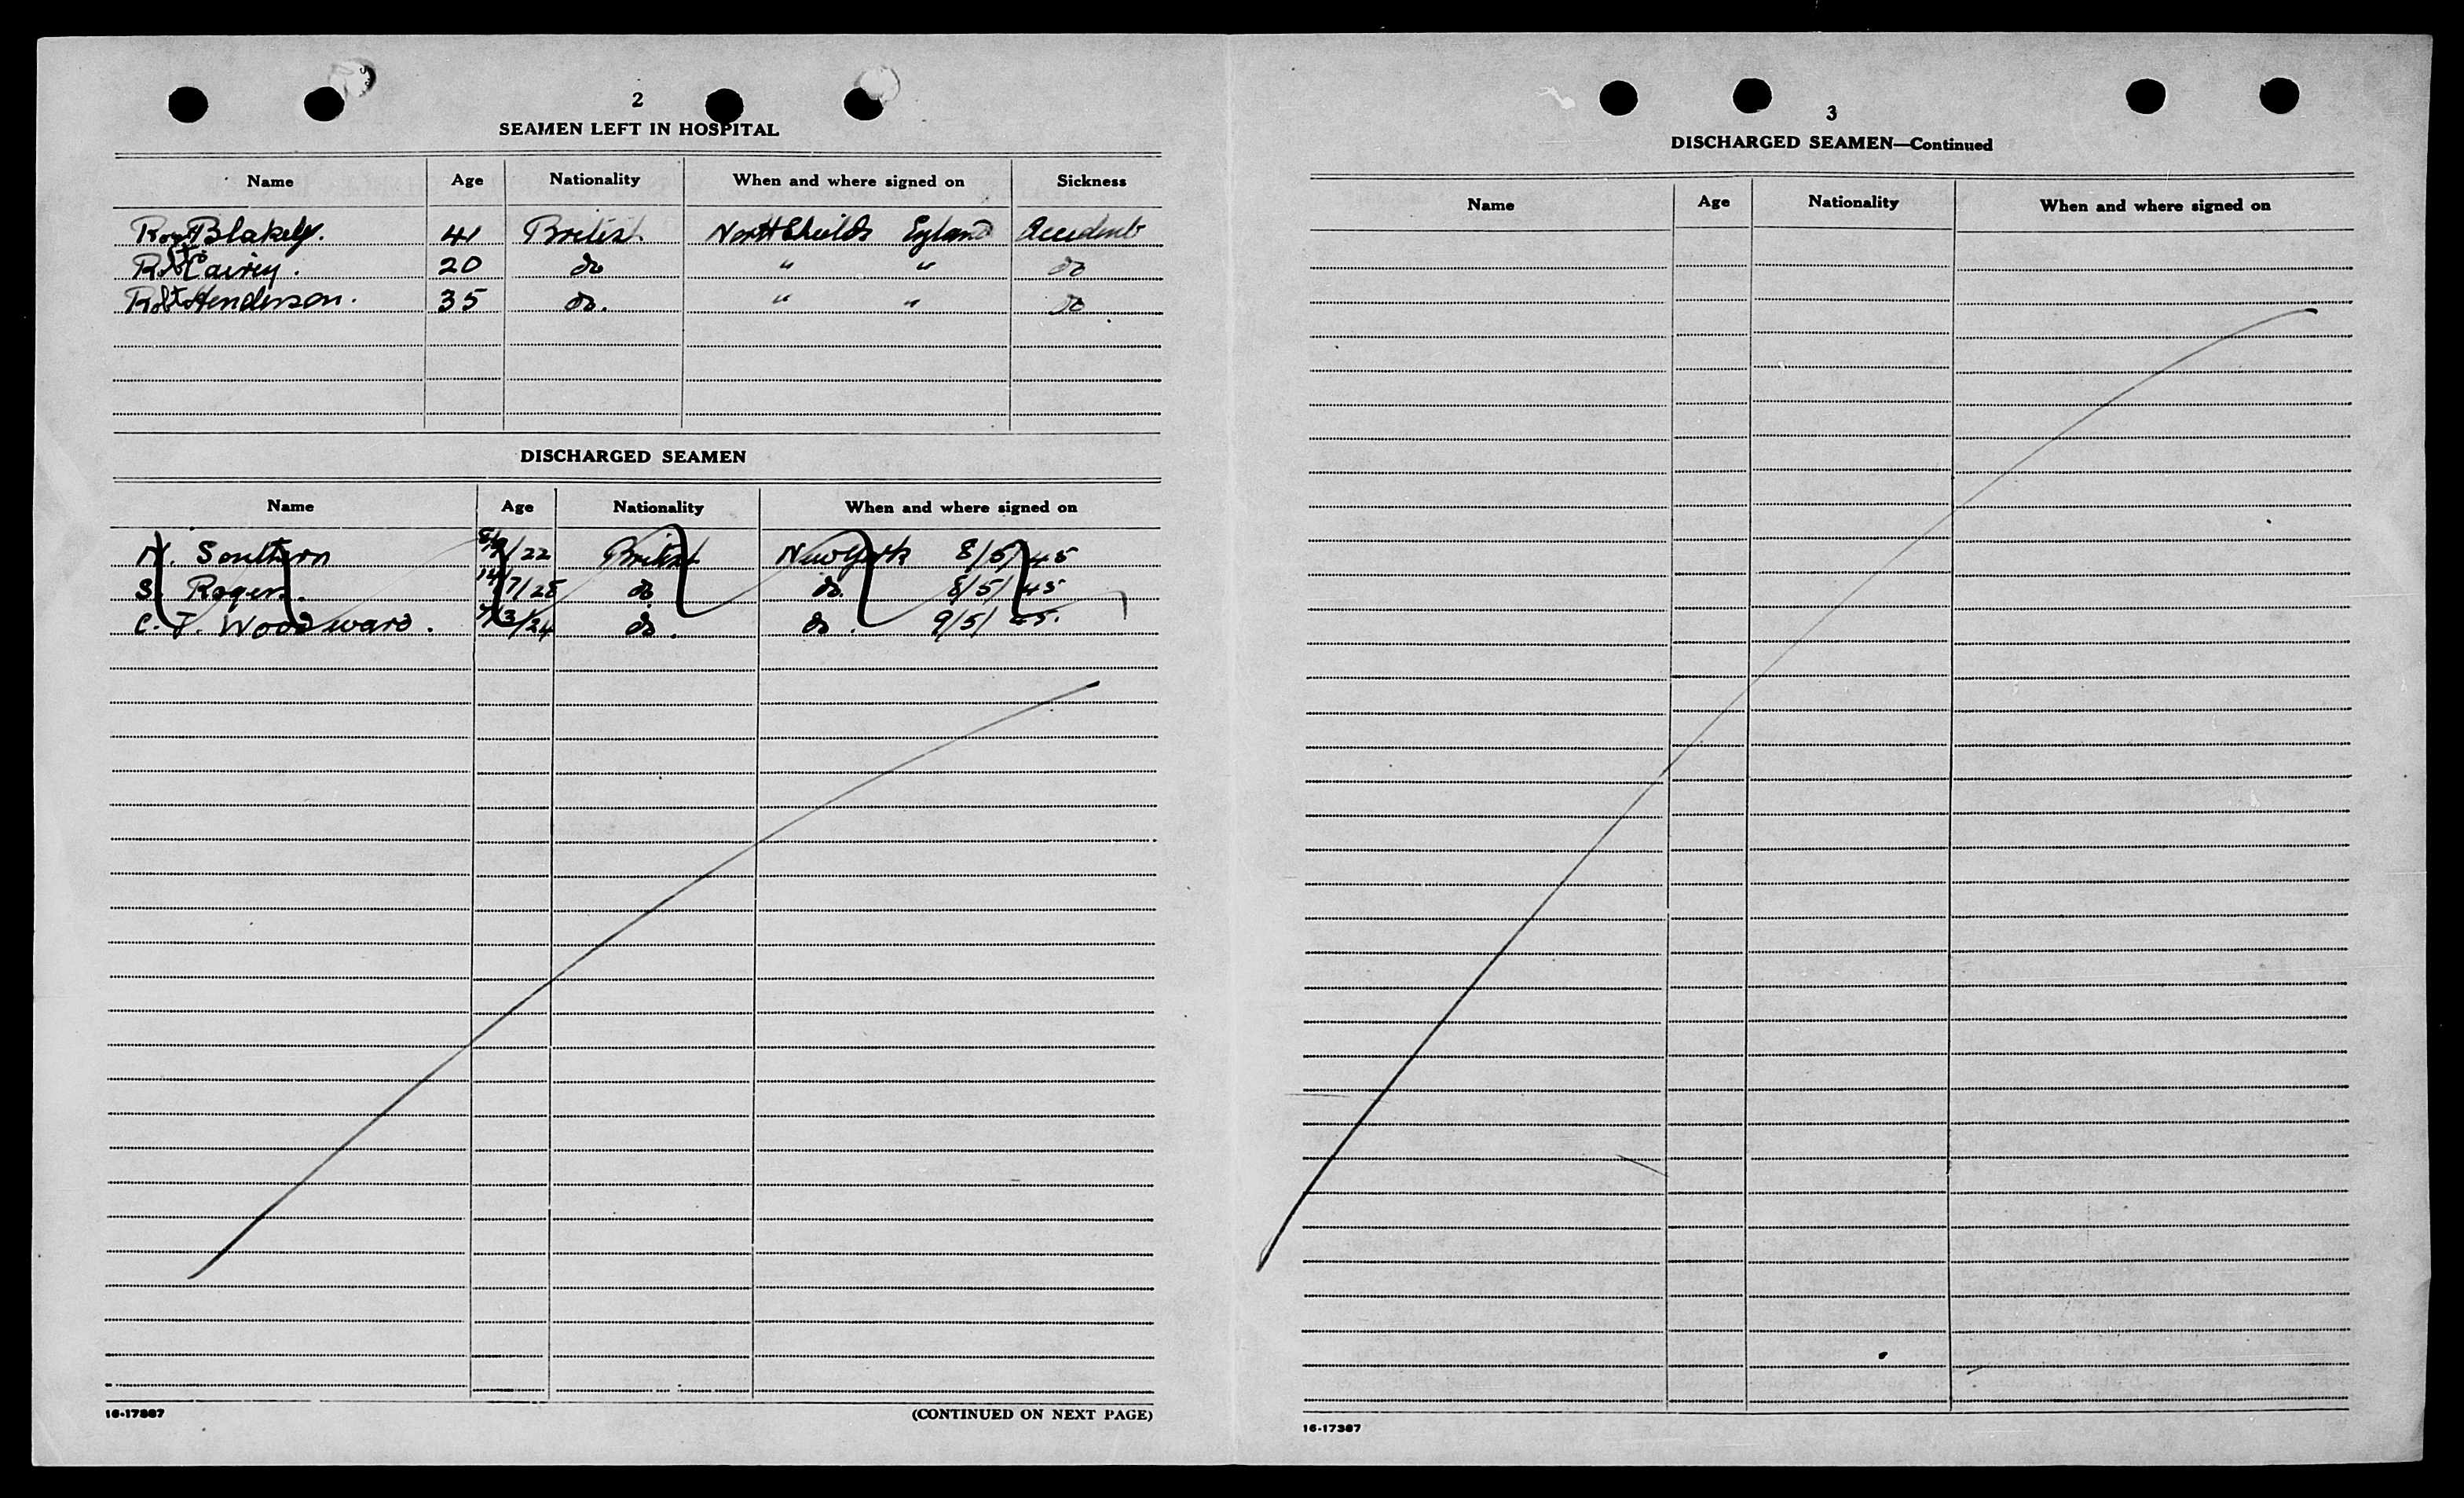 2
SEAMEN LEFT IN HOSPITAL
Name Age Nationality When and where signed on Sickness
Blakely. 41 British North Shields England Accident
20 do " " do
Robt Henderson. 35 do. " " do
DISCHARGED SEAMEN
Name Age Nationality When and where signed on
N. Southern /22 British New York 8/5/45
S. Rogers. 14/7/28 do do. 8/5/45
C. T. Woodward. 7/3/24 do. do. 9/5/45.
16-17387 (CONTINUED ON NEXT PAGE)
3
DISCHARGED SEAMEN—Continued
Name Age Nationality When and where signed on
16-17387